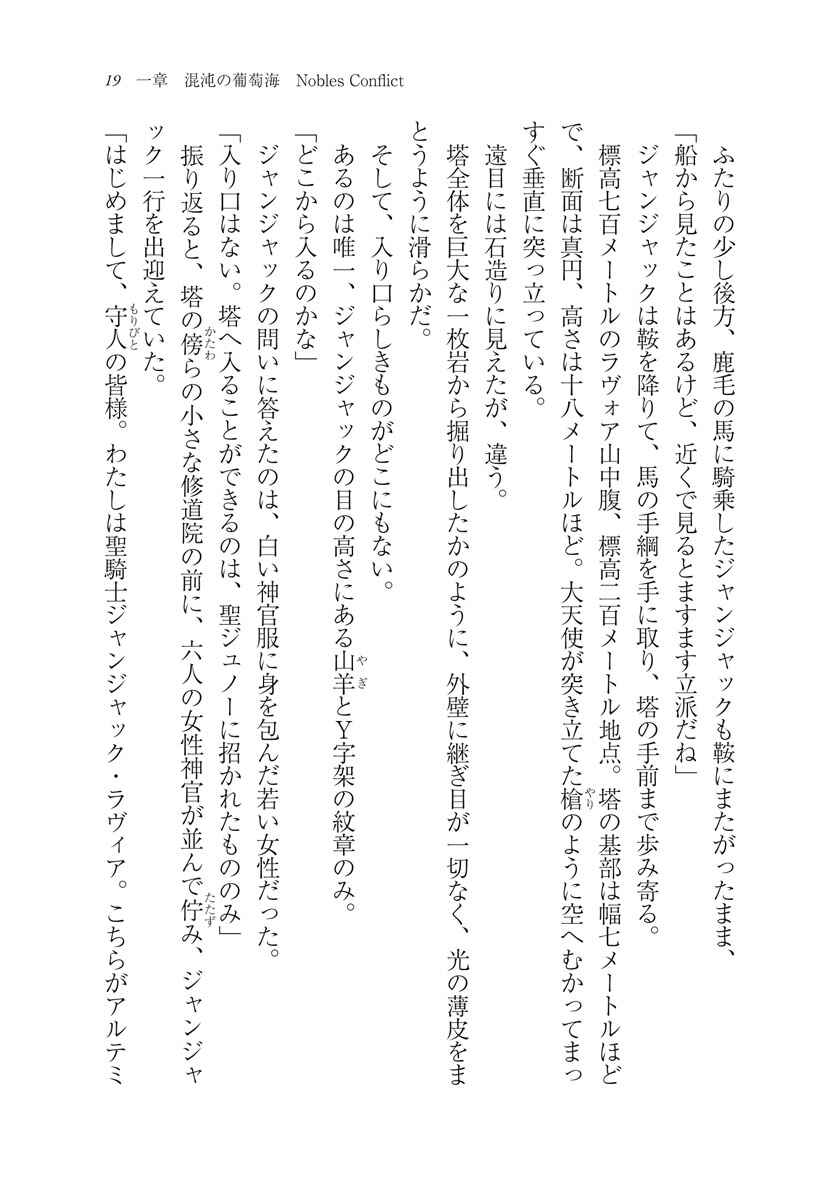 19　一章　混沌の葡萄海　Nobles Conflict
ふたりの少し後方、鹿毛の馬に騎乗したジャンジャックも鞍にまたがったまま、
「船から見たことはあるけど、近くで見るとますます立派だね」
ジャンジャックは鞍を降りて、馬の手綱を手に取り、塔の手前まで歩み寄る。
標高七百メートルのラヴォア山中腹、標高二百メートル地点。塔の基部は幅七メートルほど
で、断面は真円、高さは十八メートルほど。大天使が突き立てた槍のように空へむかってまっ
すぐ垂直に突っ立っている。
遠目には石造りに見えたが、違う。
塔全体を巨大な一枚岩から掘り出したかのように、外壁に継ぎ目が一切なく、光の薄皮をま
とうように滑らかだ。
そして、入り口らしきものがどこにもない。
あるのは唯一、ジャンジャックの目の高さにある山羊とY字架の紋章のみ。
「どこから入るのかな」
ジャンジャックの問いに答えたのは、白い神官服に身を包んだ若い女性だった。
「入り口はない。塔へ入ることができるのは、聖ジュノーに招かれたもののみ」
振り返ると、塔の傍らの小さな修道院の前に、六人の女性神官が並んで佇み、ジャンジャ
ック一行を出迎えていた。
「はじめまして、守人の皆様。わたしは聖騎士ジャンジャック・ラヴィア。こちらがアルテミ